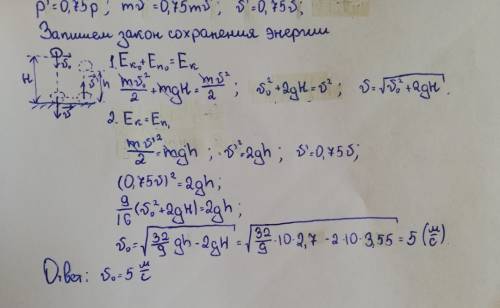 p'=0,75p; mv'=0,75mv; v'=0,75v.
Запишем закон сохранения энергии
1. Eк₀+Eп₀=Eк
H v₀ h v' v
mv₀²/2+mgH=mv²/2; v₀²+2gH=v²; v=√(v₀²+2gH).
2. Eк=Eп,
mv'²/2=mgh; v'²=2gh; v'=0,75v;
(0,75v)²=2gh;
9/16(v₀²+2gH)=2gh;
v₀=√(32/9 gh-2gH)=√(32/9·10·2,7-2·10·3,55)=5(м/с).
Ответ: v₀=5 м/с